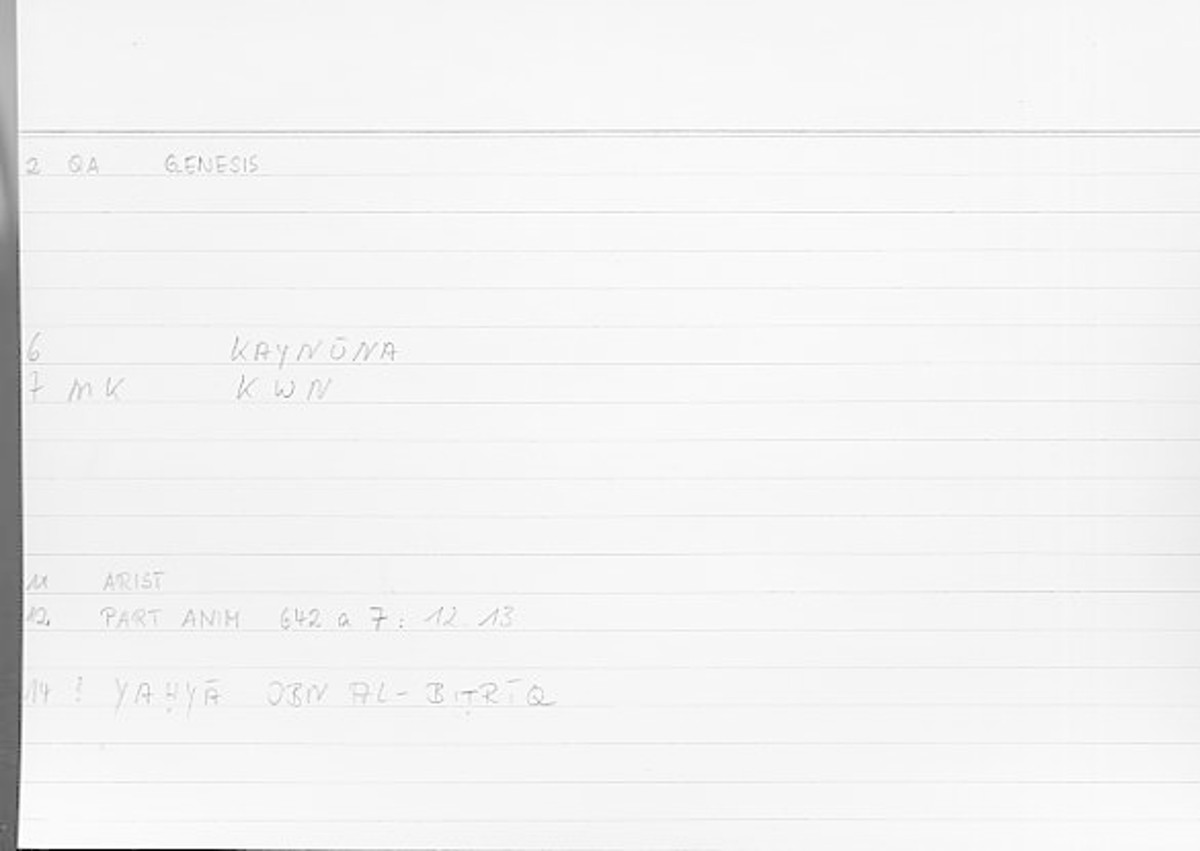 2 QA GENESIS
6 KAYNŪNA
7 MK KWN
11 ARIST
12 PART ANIM 642 a 7 : 12. 13
14 ? YAḤYĀ IBN AL-BIṬRĪQ